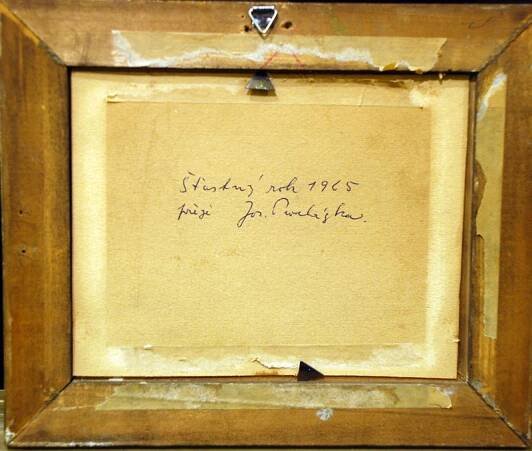 Šťastný rok 1965
přeje Jos. Procházka.